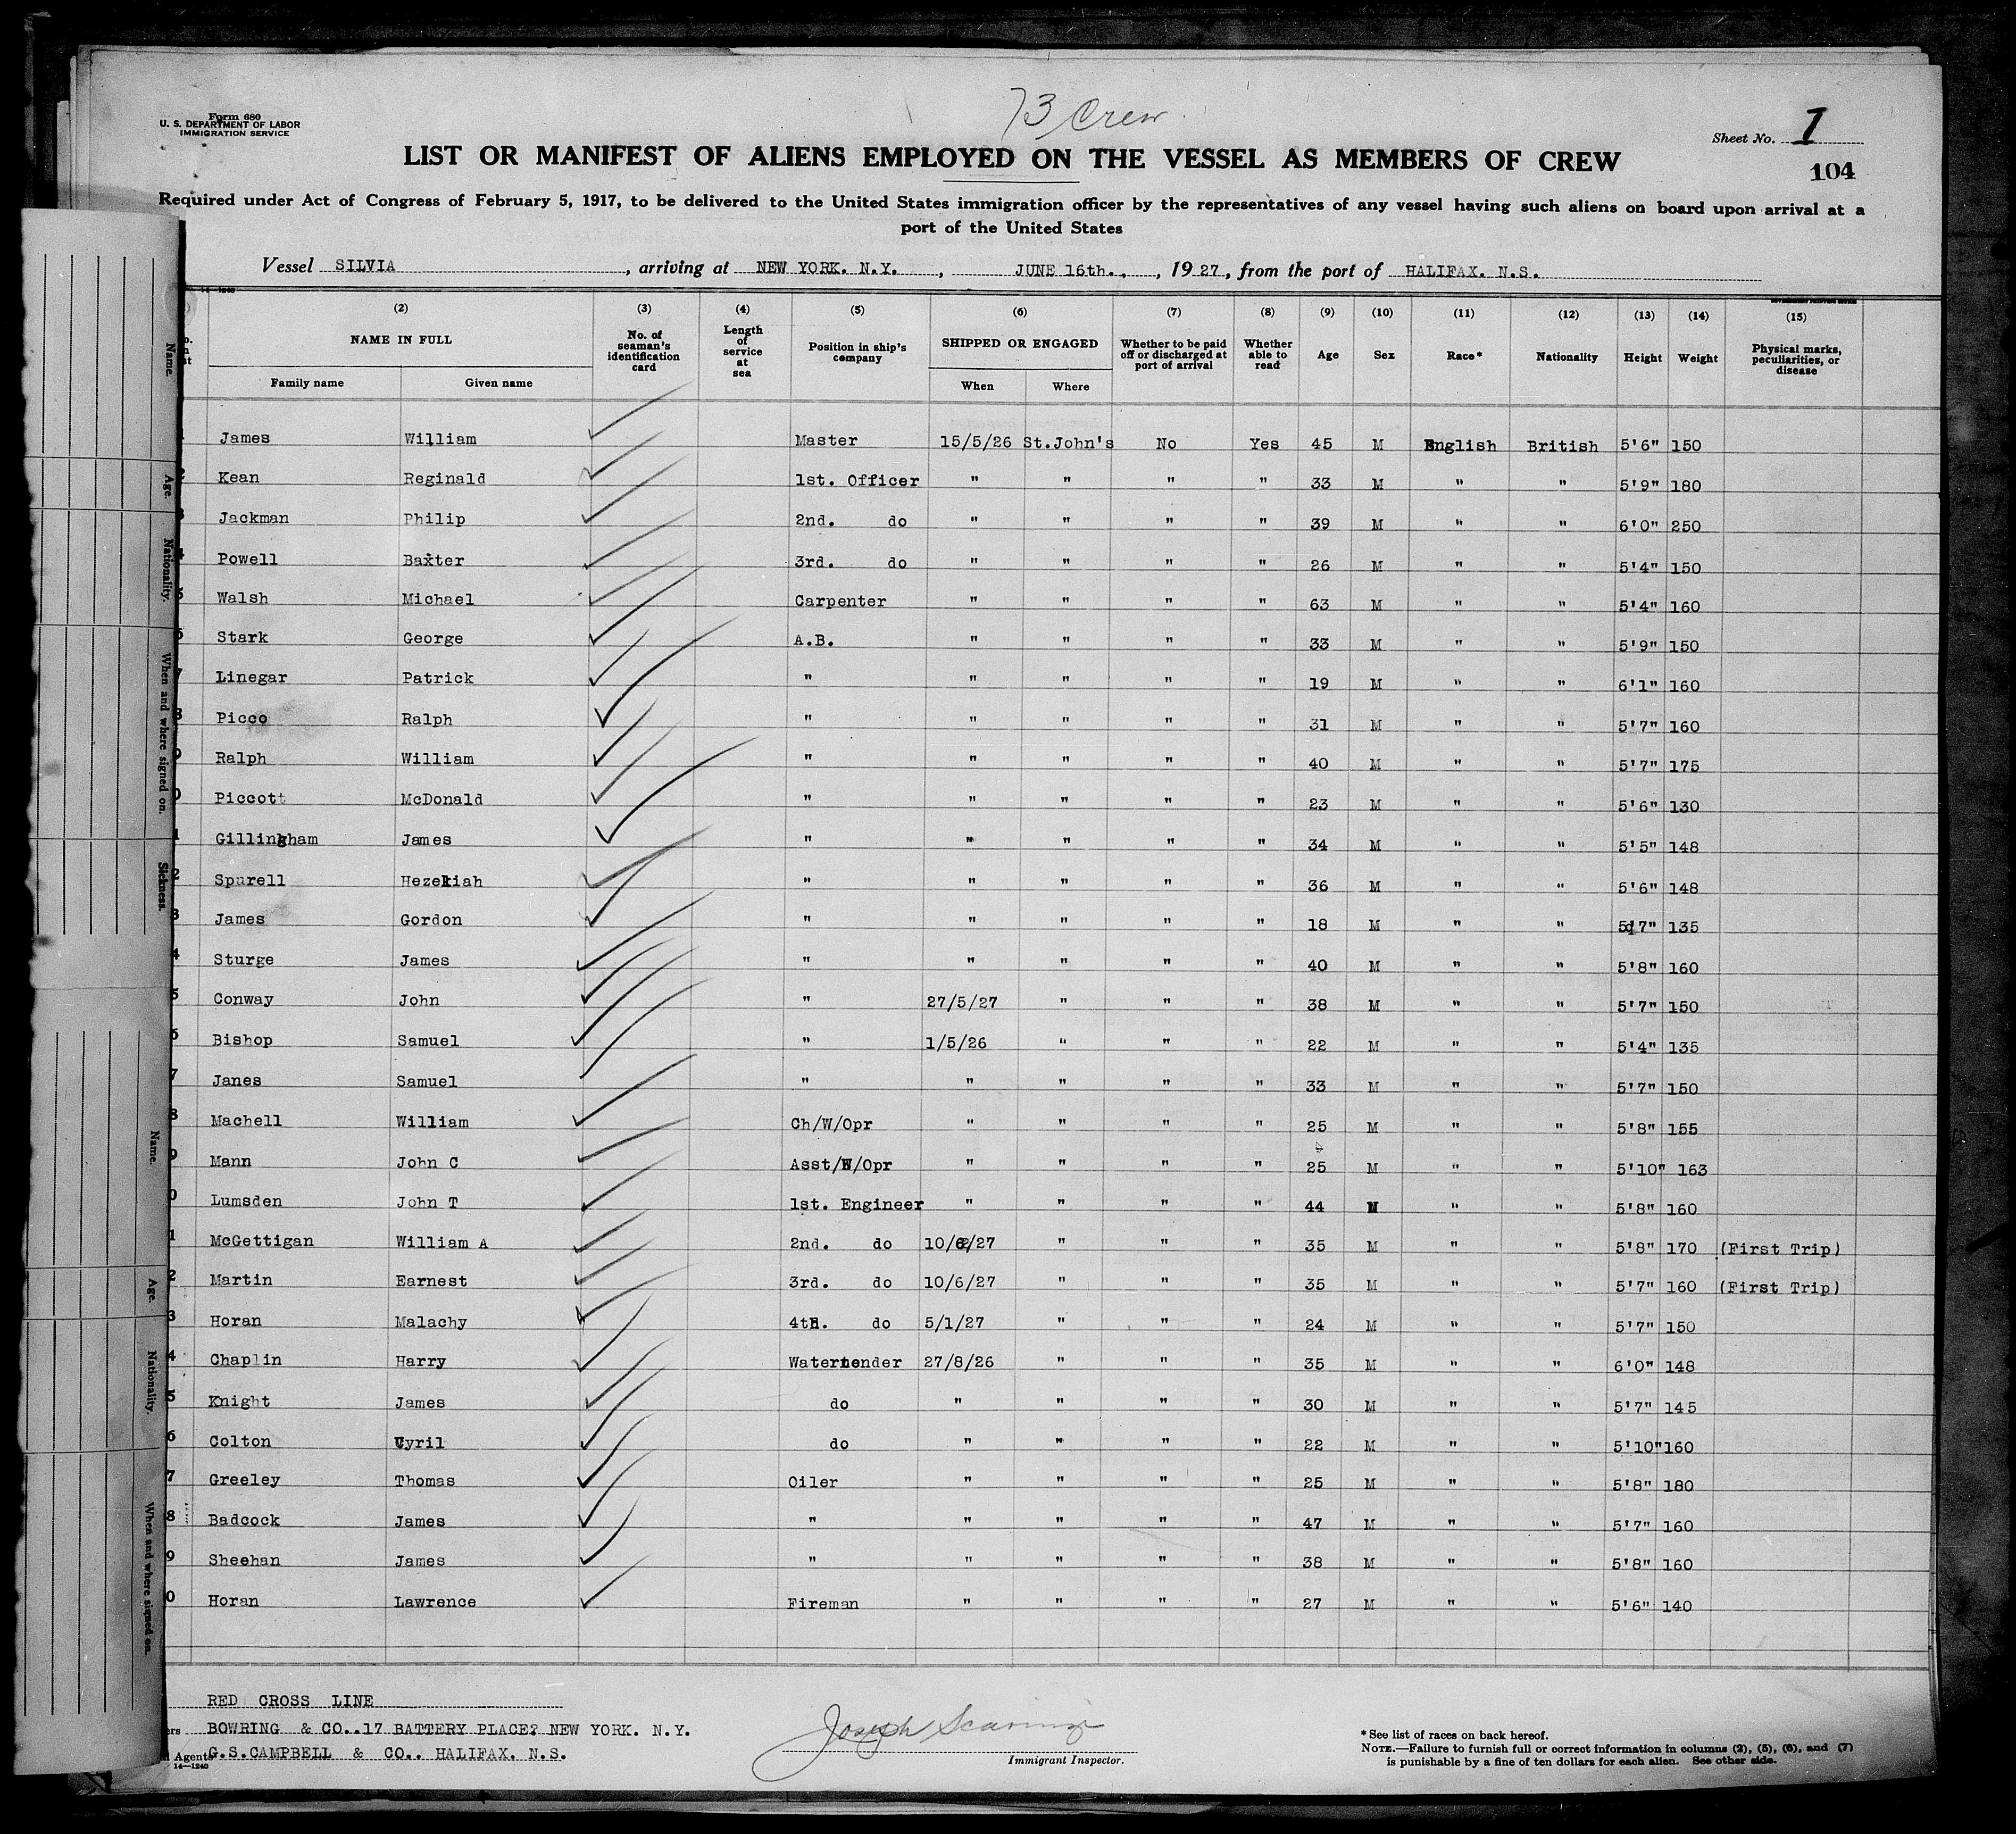 73 Crew
Form 680
U. S. DEPARTMENT OF LABOR
IMMIGRATION SERVICE
Sheet No. 1
LIST OR MANIFEST OF ALIENS EMPLOYED ON THE VESSEL AS MEMBERS OF CREW
104
Required under Act of Congress of February 5, 1917, to be delivered to the United States immigration officer by the representatives of any vessel having such aliens on board upon arrival at a
port of the United States
Vessel SILVIA, arriving at NEW YORK. N.Y., JUNE 16th., 1927, from the port of HALIFAX. N.S.
(2) (3) (4) (5) (6) (7) (8) (9) (10) (11) (12) (13) (14) (15)
NAME IN FULL No. of seaman's identification card Length of service at sea Position in ship's company SHIPPED OR ENGAGED Whether to be paid off or discharged at port of arrival Whether able to read Age Sex Race* Nationality Height Weight Physical marks, peculiarities, or disease
Family name Given name When Where
James William Master 15/5/26 St.John's No Yes 45 M English British 5'6" 150
Kean Reginald 1st. Officer " " " " 33 M " " 5'9" 180
3 Jackman Philip 2nd. do " " " " 39 M " " 6'0" 250
4 Powell Baxter 3rd. do " " " " 26 M " " 5'4" 150
5 Walsh Michael Carpenter " " " " 63 M " " 5'4" 160
6 Stark George A.B. " " " " 33 M " " 5'9" 150
7 Linegar Patrick " " " " " 19 M " " 6'1" 160
8 Picco Ralph " " " " " 31 M " " 5'7" 160
9 Ralph William " " " " " 40 M " " 5'7" 175
0 Piccott McDonald " " " " " 23 M " " 5'6" 130
1 Gillingham James " " " " " 34 M " " 5'5" 148
2 Spurell Hezekiah " " " " " 36 M " " 5'6" 148
3 James Gordon " " " " " 18 M " " 5'7" 135
4 Sturge James " " " " " 40 M " " 5'8" 160
5 Conway John " 27/5/27 " " " 38 M " " 5'7" 150
6 Bishop Samuel " 1/5/26 " " " 22 M " " 5'4" 135
7 Janes Samuel " " " " " 33 M " " 5'7" 150
8 Machell William Ch/W/Opr " " " " 25 M " " 5'8" 155
9 Mann John C Asst/W/Opr " " " " 25 M " " 5'10" 163
0 Lumsden John T 1st. Engineer " " " " 44 M " " 5'8" 160
1 McGettigan William A 2nd. do 10/6/27 " " " 35 M " " 5'8" 170 (First Trip)
2 Martin Earnest 3rd. do 10/6/27 " " " 35 M " " 5'7" 160 (First Trip)
3 Horan Malachy 4th. do 5/1/27 " " " 24 M " " 5'7" 150
4 Chaplin Harry Watertender 27/8/26 " " " 35 M " " 6'0" 148
5 Knight James do " " " " 30 M " " 5'7" 145
6 Colton Cyril do " " " " 22 M " " 5'10" 160
7 Greeley Thomas Oiler " " " " 25 M " " 5'8" 180
8 Badcock James " " " " " 47 M " " 5'7" 160
9 Sheehan James " " " " " 38 M " " 5'8" 160
0 Horan Lawrence Fireman " " " " 27 M " " 5'6" 140
Name. Age. Nationality. When and where signed on. Sickness.
Name. Age. Nationality. When and where signed on.
RED CROSS LINE
BOWRING & CO..17 BATTERY PLACE? NEW YORK. N.Y.
Agents G.S.CAMPBELL & CO.. HALIFAX. N.S.
14—1240
Joseph
Immigrant Inspector.
* See list of races on back hereof.
NOTE.—Failure to furnish full or correct information in columns (2), (5), (6), and (7)
is punishable by a fine of ten dollars for each alien. See other side.